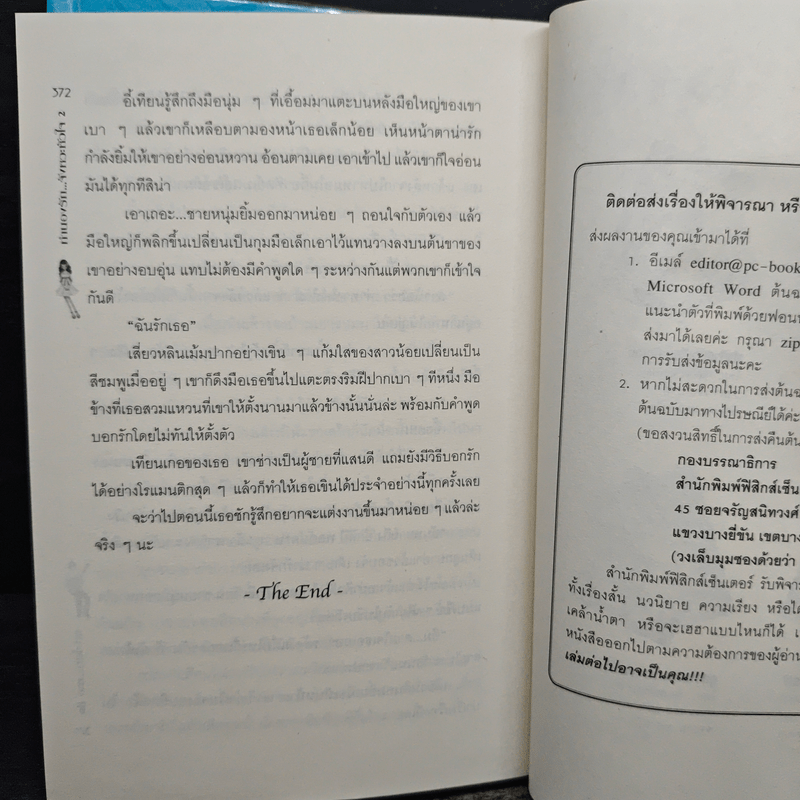 372
อี้เทียนรู้สึกถึงมือนุ่ม ๆ ที่เอื้อมมาแตะบนหลังมือใหญ่ของเขา
เบา ๆ แล้วเขาก็เหลือบตามองหน้าเธอเล็กน้อย เห็นหน้าตาน่ารัก
กำลังยิ้มให้เขาอย่างอ่อนหวาน อ้อนตามเคย เอาเข้าไป แล้วเขาก็ใจอ่อน
มันได้ทุกทีสิน่า
เอาเถอะ...ชายหนุ่มยิ้มออกมาหน่อย ๆ ถอนใจกับตัวเอง แล้ว
มือใหญ่ก็พลิกขึ้นเปลี่ยนเป็นกุมมือเล็กเอาไว้แทนวางลงบนต้นขาของ
เขาอย่างอบอุ่น แทบไม่ต้องมีคำพูดใด ๆ ระหว่างกันแต่พวกเขาก็เข้าใจ
กันดี
“ฉันรักเธอ”
เสี่ยวหลินเม้มปากอย่างเขิน ๆ แก้มใสของสาวน้อยเปลี่ยนเป็น
สีชมพูเมื่ออยู่ ๆ เขาก็ดึงมือเธอขึ้นไปแตะตรงริมฝีปากเบา ๆ ทีหนึ่ง มือ
ข้างที่เธอสวมแหวนที่เขาให้ตั้งนานมาแล้วข้างนั้นนั่นล่ะ พร้อมกับคำพูด
บอกรักโดยไม่ทันให้ตั้งตัว
เทียนเกอของเธอ เขาช่างเป็นผู้ชายที่แสนดี แถมยังมีวิธีบอกรัก
ได้อย่างโรแมนติกสุด ๆ แล้วก็ทำให้เธอเขินได้ประจำอย่างนี้ทุกครั้งเลย
จะว่าไปตอนนี้เธอชักรู้สึกอยากจะแต่งงานขึ้นมาหน่อย ๆ แล้วล่ะ
จริง ๆ นะ
- The End -
ติดต่อส่งเรื่องให้พิจารณา หรื
ส่งผลงานของคุณเข้ามาได้ที่
1. อีเมล์ editor@pc-book
Microsoft Word ต้นฉ
แนะนำตัวที่พิมพ์ด้วยฟอนท
ส่งมาได้เลยค่ะ กรุณา zip
การรับส่งข้อมูลนะคะ
2. หากไม่สะดวกในการส่งต้นฉ
ต้นฉบับมาทางไปรษณีย์ได้ค่ะ
(ขอสงวนสิทธิ์ในการส่งคืนต้น
กองบรรณาธิการ
สำนักพิมพ์ฟิสิกส์เซ็น
45 ซอยจรัญสนิทวงศ์
แขวงบางยี่ขัน เขตบาง
(วงเล็บมุมซองด้วยว่า
สำนักพิมพ์ฟิสิกส์เซ็นเตอร์ รับพิจาร
ทั้งเรื่องสั้น นวนิยาย ความเรียง หรือไ
เคล้าน้ำตา หรือจะเฮฮาแบบไหนก็ได้ เ
หนังสือออกไปตามความต้องการของผู้อ่าน
เล่มต่อไปอาจเป็นคุณ!!!